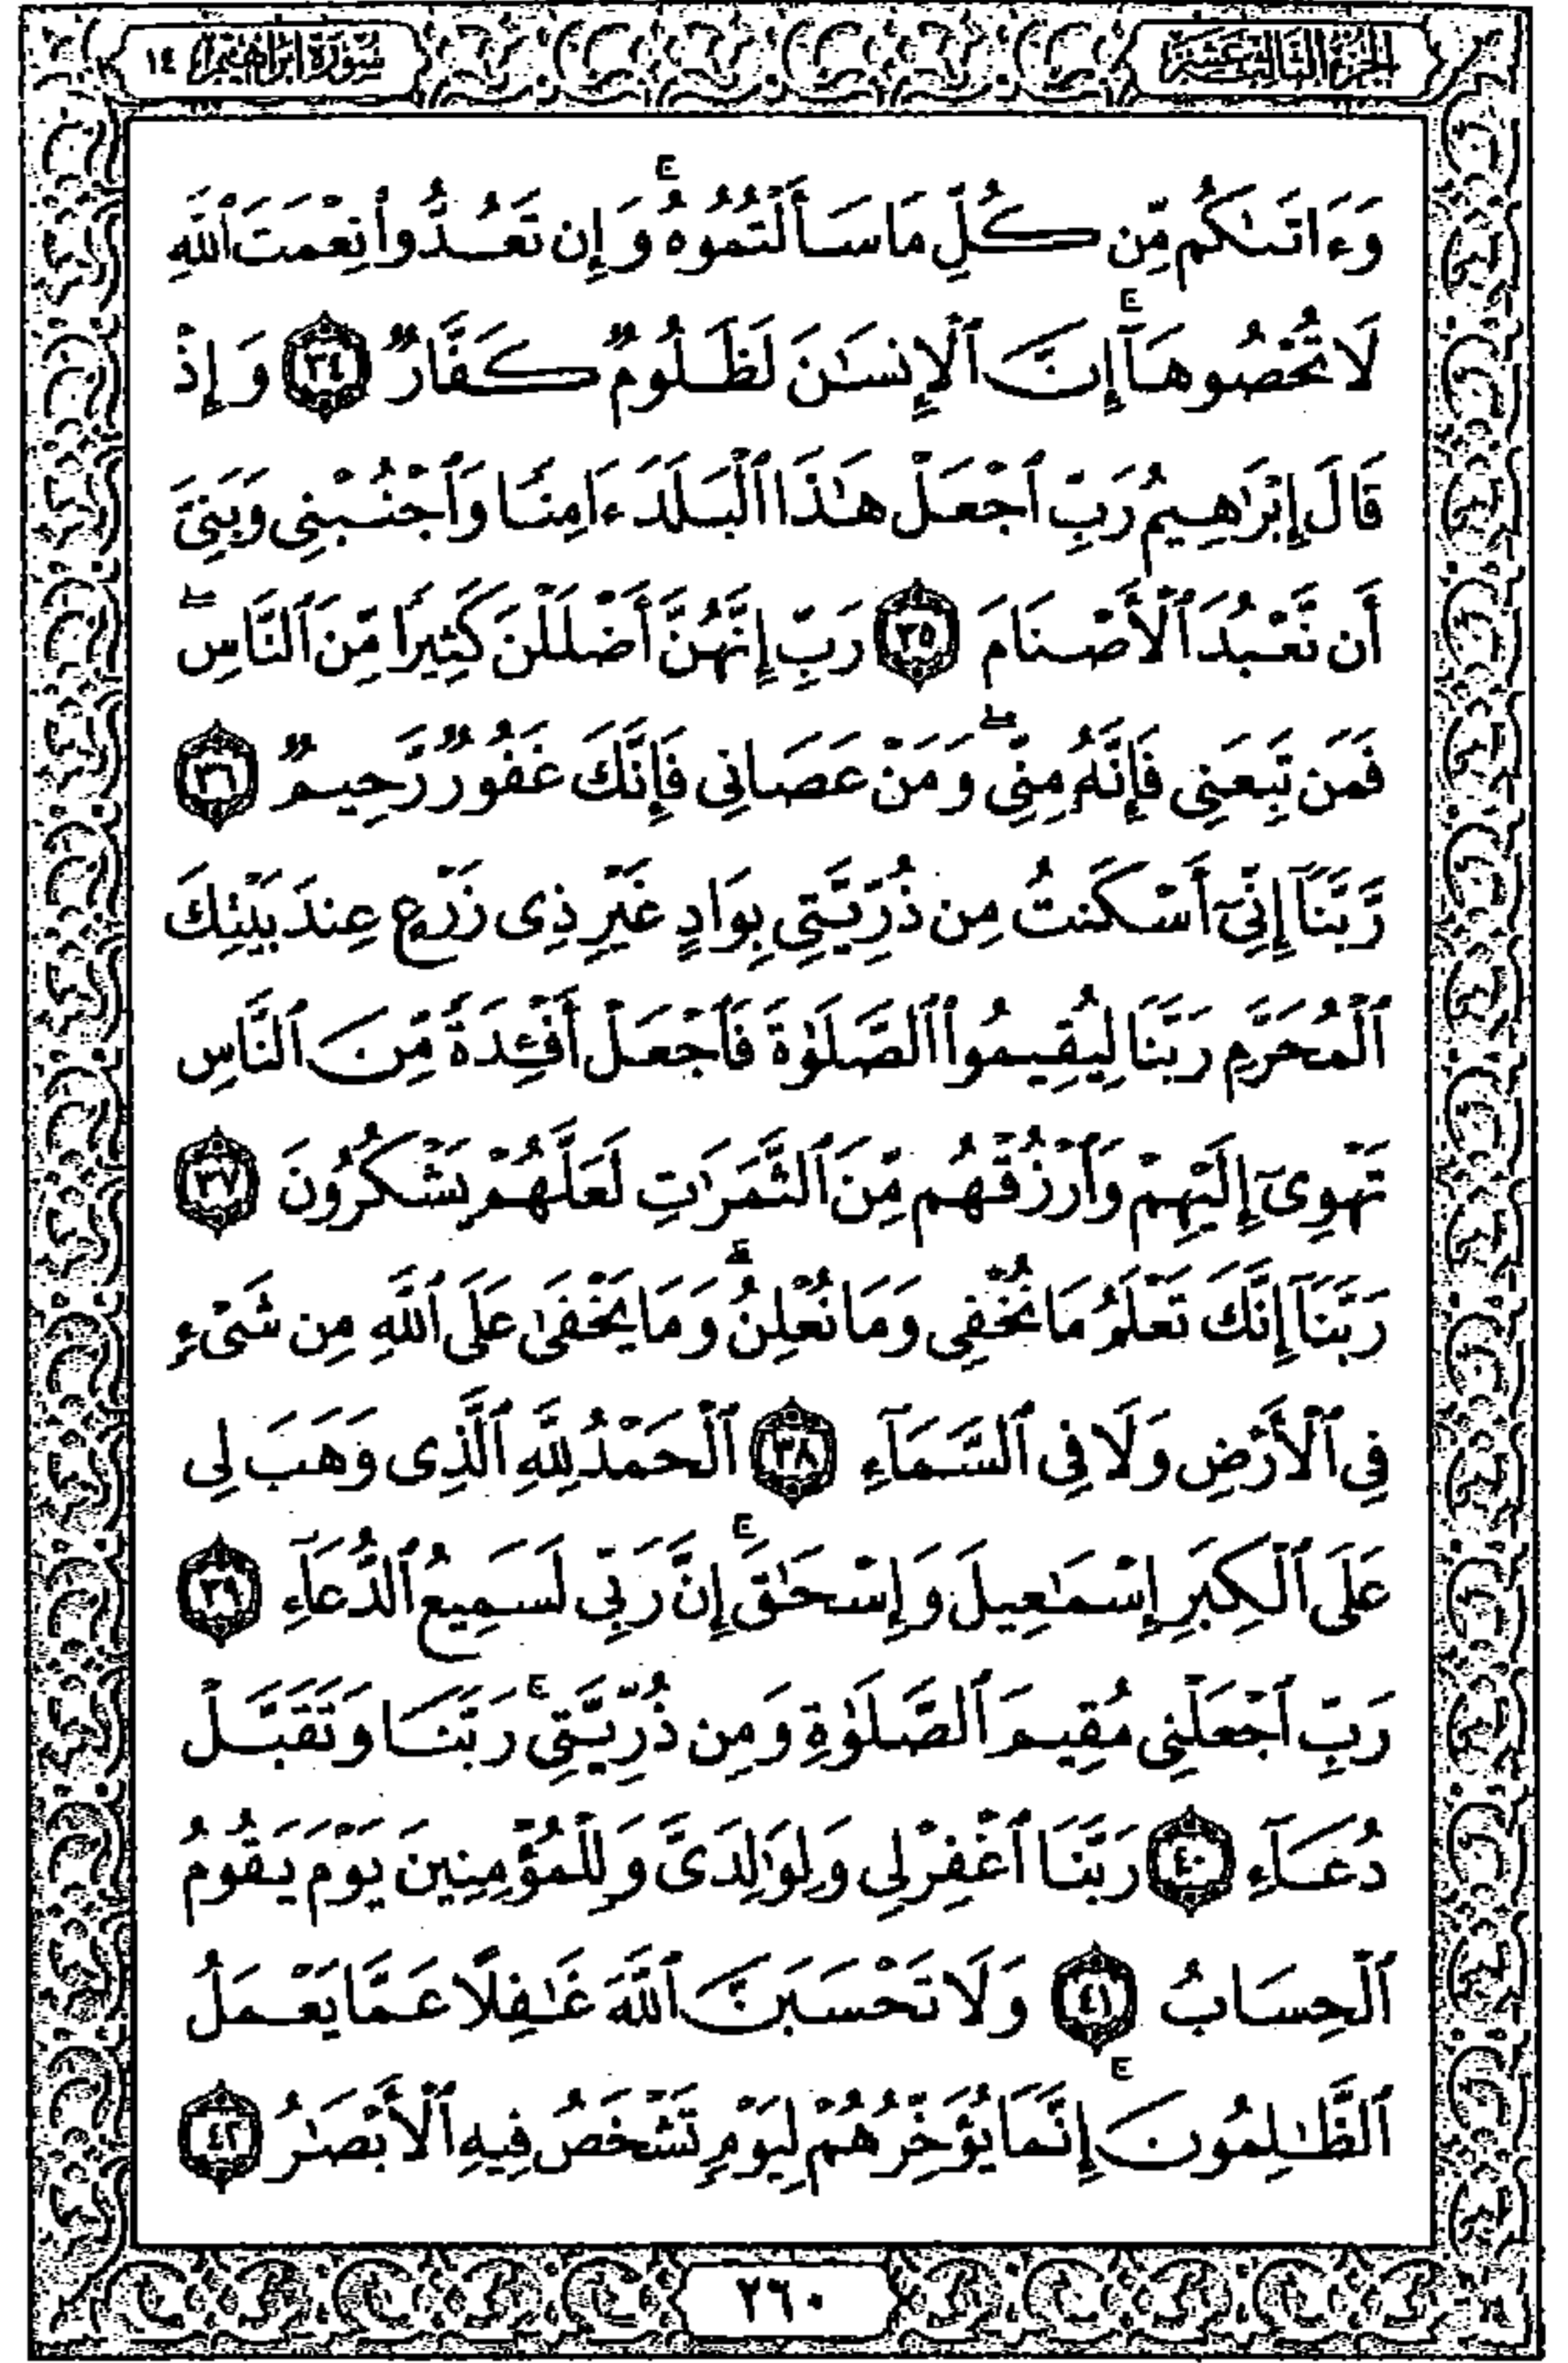 الجزء الثالث عشر
سورة ابراهيم ١٤
وَءَاتَىٰكُم مِّن كُلِّ مَا سَأَلْتُمُوهُ ۚ وَإِن تَعُدُّوا۟ نِعْمَتَ ٱللَّهِ
لَا تُحْصُوهَآ ۗ إِنَّ ٱلْإِنسَٰنَ لَظَلُومٌ كَفَّارٌ ٣٤ وَإِذْ
قَالَ إِبْرَٰهِيمُ رَبِّ ٱجْعَلْ هَٰذَا ٱلْبَلَدَ ءَامِنًا وَٱجْنُبْنِى وَبَنِىَّ
أَن نَّعْبُدَ ٱلْأَصْنَامَ ٣٥ رَبِّ إِنَّهُنَّ أَضْلَلْنَ كَثِيرًا مِّنَ ٱلنَّاسِ ۖ
فَمَن تَبِعَنِى فَإِنَّهُۥ مِنِّى ۖ وَمَنْ عَصَانِى فَإِنَّكَ غَفُورٌ رَّحِيمٌ ٣٦
رَّبَّنَآ إِنِّىٓ أَسْكَنتُ مِن ذُرِّيَّتِى بِوَادٍ غَيْرِ ذِى زَرْعٍ عِندَ بَيْتِكَ
ٱلْمُحَرَّمِ رَبَّنَا لِيُقِيمُوا۟ ٱلصَّلَوٰةَ فَٱجْعَلْ أَفْـِٔدَةً مِّنَ ٱلنَّاسِ
تَهْوِىٓ إِلَيْهِمْ وَٱرْزُقْهُم مِّنَ ٱلثَّمَرَٰتِ لَعَلَّهُمْ يَشْكُرُونَ ٣٧
رَبَّنَآ إِنَّكَ تَعْلَمُ مَا نُخْفِى وَمَا نُعْلِنُ ۗ وَمَا يَخْفَىٰ عَلَى ٱللَّهِ مِن شَىْءٍ
فِى ٱلْأَرْضِ وَلَا فِى ٱلسَّمَآءِ ٣٨ ٱلْحَمْدُ لِلَّهِ ٱلَّذِى وَهَبَ لِى
عَلَى ٱلْكِبَرِ إِسْمَٰعِيلَ وَإِسْحَٰقَ ۚ إِنَّ رَبِّى لَسَمِيعُ ٱلدُّعَآءِ ٣٩
رَبِّ ٱجْعَلْنِى مُقِيمَ ٱلصَّلَوٰةِ وَمِن ذُرِّيَّتِى ۚ رَبَّنَا وَتَقَبَّلْ
دُعَآءِ ٤٠ رَبَّنَا ٱغْفِرْ لِى وَلِوَٰلِدَىَّ وَلِلْمُؤْمِنِينَ يَوْمَ يَقُومُ
ٱلْحِسَابُ ٤١ وَلَا تَحْسَبَنَّ ٱللَّهَ غَٰفِلًا عَمَّا يَعْمَلُ
ٱلظَّٰلِمُونَ ۚ إِنَّمَا يُؤَخِّرُهُمْ لِيَوْمٍ تَشْخَصُ فِيهِ ٱلْأَبْصَٰرُ ٤٢
٢٦٠